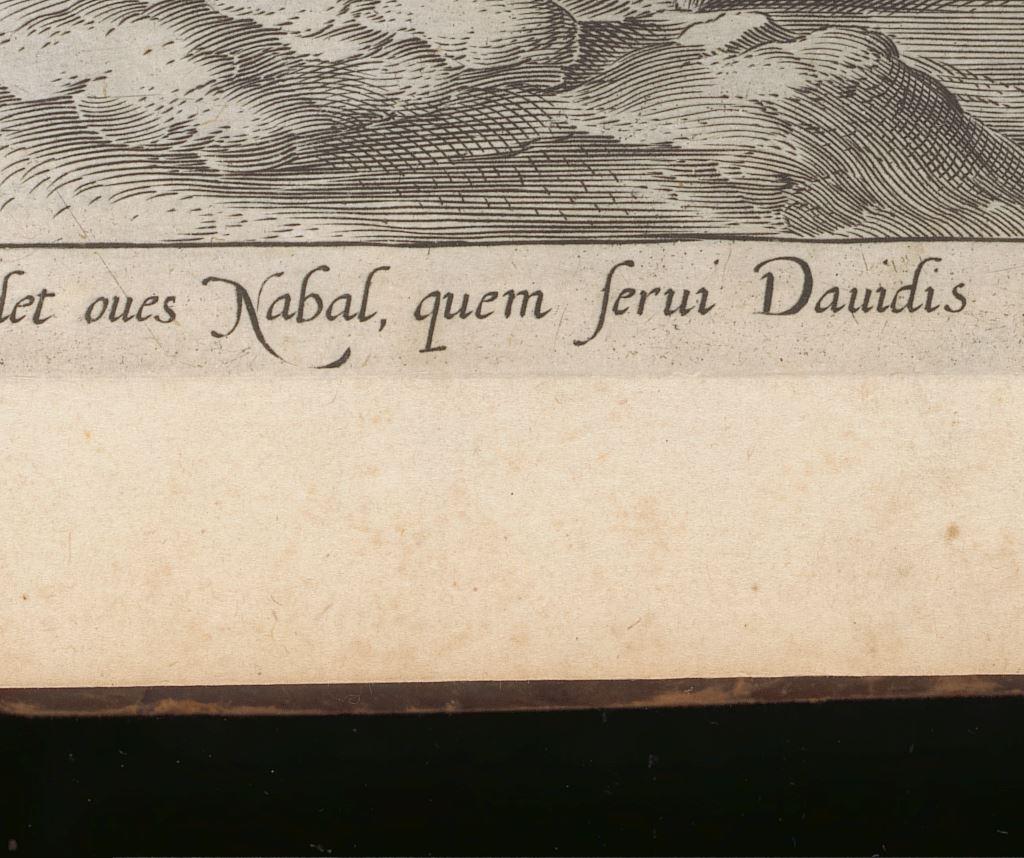 let oues Nabal, quem ſerui Dauidis